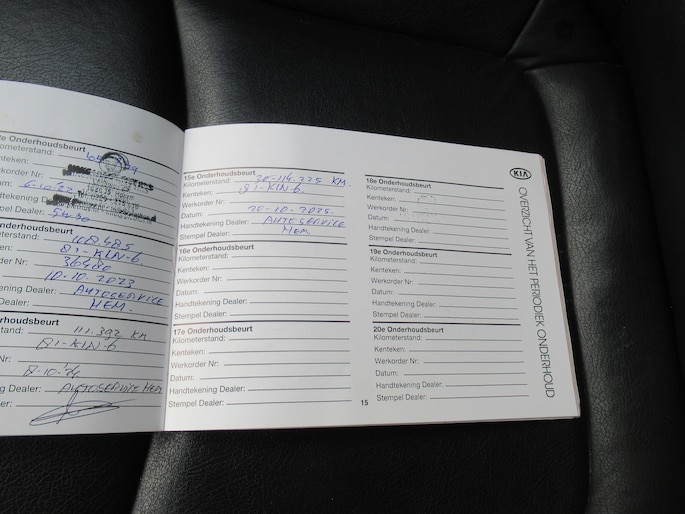 Onderhoudsbeurt
6-10-22
5w30
nderhoudsbeurt
rstand: 108485
81-KIN-6
Nr: 36480
10-10-2023
ening Dealer: AUTOSERVICE
Dealer: HEM.
rhoudsbeurt
tand: 111.392 KM
81-KIN-6
Nr:
8-10-'24
g Dealer: AUTOSERVICE HEM
er:
15e Onderhoudsbeurt
Kilometerstand: 114.225 KM.
Kenteken: 81-KIN-6
Werkorder Nr:
Datum: 20-10-2025.
Handtekening Dealer: AUTOSERVICE
Stempel Dealer: HEM.
16e Onderhoudsbeurt
Kilometerstand:
Kenteken:
Werkorder Nr:
Datum:
Handtekening Dealer:
Stempel Dealer:
17e Onderhoudsbeurt
Kilometerstand:
Kenteken:
Werkorder Nr:
Datum:
Handtekening Dealer:
Stempel Dealer:
18e Onderhoudsbeurt
Kilometerstand:
Kenteken:
Werkorder Nr:
Datum:
Handtekening Dealer:
Stempel Dealer:
19e Onderhoudsbeurt
Kilometerstand:
Kenteken:
Werkorder Nr:
Datum:
Handtekening Dealer:
Stempel Dealer:
20e Onderhoudsbeurt
Kilometerstand:
Kenteken:
Werkorder Nr:
Datum:
Handtekening Dealer:
Stempel Dealer:
15
KIA
OVERZICHT VAN HET PERIODIEK ONDERHOUD